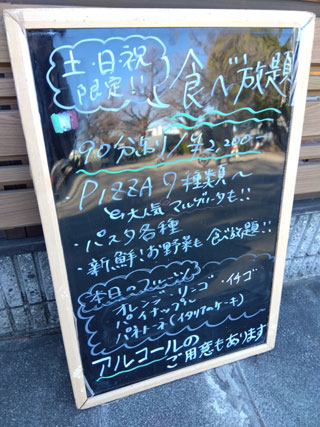 土・日・祝
限定!!
食べ放題
90分制/¥2,200-
・PIZZA 9種類〜
大人気マルゲリータも!!
・パスタ各種
・新鮮!お野菜も食べ放題!!
本日のフルーツ
オレンジ・リンゴ・イチゴ
パイナップル
パネトーネ(イタリアのケーキ)
アルコールの
ご用意もあります